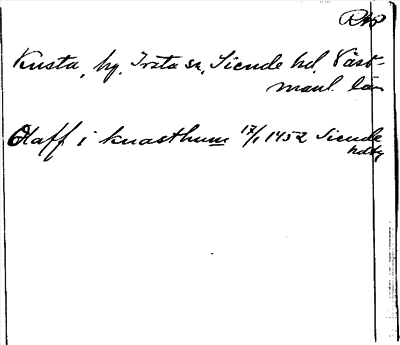 Kusta, by. Irsta sn, Siende hd. Väst-
manl. län
Olaff i knasthum 17/1 1452 Siende
hdtg